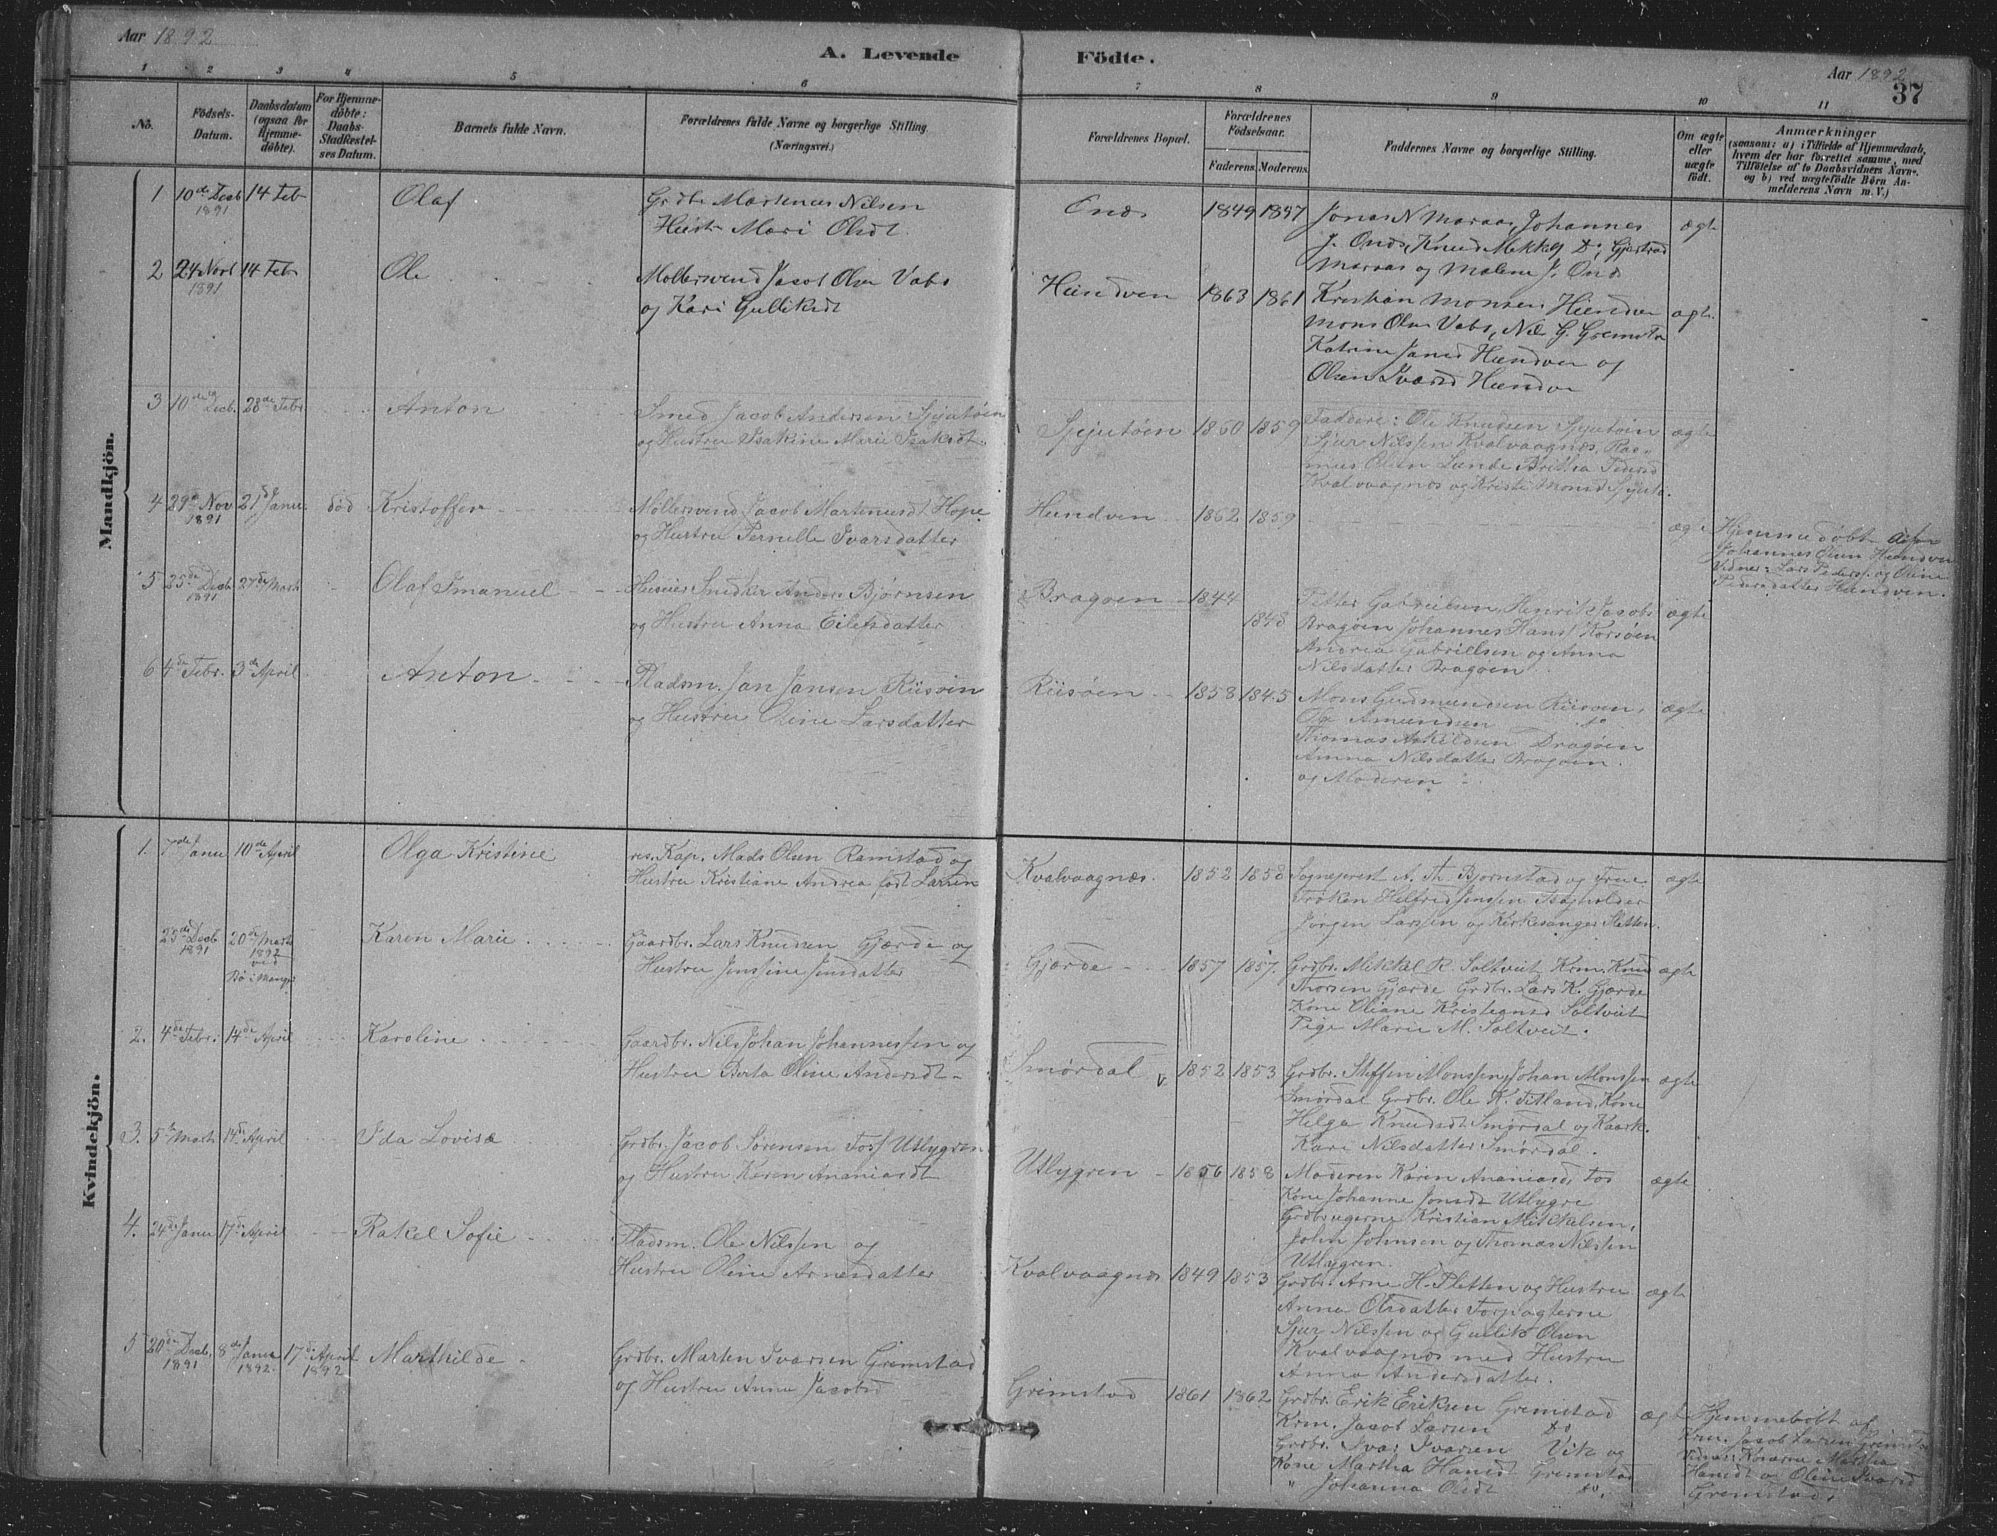 Aar 1892
A. Levende Födte.
Aar 1892
37
1 2 3 4 5 6 7 8 9 10 11
No.
Födsels-
Datum.
Daabsdatum
(ogsaa for
Hjemme-
döbte).
For Hjemme-
döbte:
Daabs-
Stadfæstel-
ses Datum.
Barnets fulde Navn.
Forældrenes fulde Navne og borgerlige Stilling
(Næringsvei.)
Forældrenes Bopæl.
Forældrenes
Födselsaar.
Faderens. Moderens.
Faddernes Navne og borgerlige Stilling.
Om ægte
eller
uægte
födt.
Anmærkninger
(saasom: a) i Tilfælde af Hjemmedaab,
hvem der har forrettet samme, med
Tilföielse af to Daabsvidners Navne,
og b) ved uægtefödte Børn An-
melderens Navn m. V.)
Mandkjön.
1 10de Decb 1891 14 Feb Olaf
Grdbr Martenus Nilsen
Hustr Mari Olsdt.
Onds 1849 1857
Jonas N Maraas, Johannes
J. Onds, Knud Mekkel Do, Gjertrud
Maraas og Malene J. Onds
ægte
2 24 Novb 1891 14 Febr Ole
Møllersvend Jacob Olsen Vabs
og Kari Gulliksdt
Hundven 1863 1861
Kristian Monsen Hundven
Mons Olsen Vabs, Nils G. Gremsta
Katrine Jansd Hundven og
Olsen Ivarsd Hundven
ægte
3 10de Decb. 28de Febr Anton
Smed Jacob Andersen Spjutøen
og Hustru Isakine Marie Isaksdt.
Spjutøen 1860 1859
Faddere: Ole Knudsen Spjutøen
Sjur Nilssen Kvalvaagnæs, Ras-
mus Olsen Lunde Britha Pedersd
Kvalvaagnæs og Kristi Monsd Spjutø.
ægte
4 29de Nov 1891 21de Janu. død Kristoffer
Møllersvend Jacob Martenusdt Hope
og Hustru Pernille Ivarsdatter
Hundven 1862 1859
ægte
Hjemmedøbt af
Johannes Olsen Hundven
Vidner: Lars Pederss. og Oline
Pedersdatter Hundven.
5 25de Decb. 1891 27de Marts Olaf Imanuel
Husm. Snedker Anders Bjørnsen
og Hustru Anna Eilefsdatter
Bragøen 1844 1848
Petter Gabrielsen, Henrik Jacobs
Bragøen Johannes Hans Korsøen
Andrea Gabrielsen og Anna
Nilsdatter Bragøen
ægte
6 4de Febr. 3de April Anton
Pladsm. Jan Jansen Riisøen
og Hustru Oline Larsdatter
Riisøen 1858 1845
Mons Gudmundsen Riisøen,
Ole Amundsen do
Thomas Askildsen Dragøen
Anna Nilsdatter Bragøen.
og Moderen
ægte
Kvindekjön.
1. 7de Janu 10de April Olga Kristine
res. Kap. Mads Olsen Ramstad og
Hustru Kristiane Andrea født Larsen
Kvalvaagnæs. 1852 1858
Sogneprest A. Th. Bjørnstad og Frue
Frøken Helfred Jenssen
Jørgen Larssen og Kirkesanger Sletten.
ægte
25de Decb 1891 20de Marts 1892 ved Bø i Manger Karen Marie
Gaardbr. Lars Knudsen Gjærde og
Hustru Jenssine Jensdatter
Gjærde 1857 1857.
Grdbr. Mikkel R. Soltveit Krm. Knud
Thorsen Gjærde Grdbr. Lars K. Gjærde
Kone Oliane Kristiansd Soltveit
Pige Marie M. Soltveit.
ægte
2. 4de Febr. 14de April Karoline
Gaardbr. Nils Johan Johannessen og
Hustru Berta Oline Andersdt
Smørdal 1852 1853
Grdbr. Steffen Monssen, Johan Monssen
Smørdal Grdbr. Ole K. Titland, Kone
Helga Knudsdt Smørdal og Kaark.
Kari Nilsdatter Smørdal.
ægte
3. 5te Marts 14de April Ida Lovise
Grdbr. Jacob Sørensen Foss Utlygren
og Hustru Karen Ananiasdt
Utlygren 1856 1858
Moderen Karen Ananiasd, Fos
Kone Johanne Jonsdt Utlygre
Grdbrugerne Kristian Mikkelsen,
John Johnsen og Thomas Nilssen
Utlygren.
ægte
4. 24de Janu 17de April Rakel Sofie
Pladsm. Ole Nilssen og
Hustru Oline Arnesdatter
Kvalvaagnæs 1849 1853
Grdbr. Arne H. Sletten og Hustru
Anna Olsdatter Forpagterne
Sjur Nilssen og Gullik Olsen
Kvalvaagnæs med Hustru
Anna Andersdatter.
ægte
5 20de Decb. 1891 8de Janu 1892. 17de April 1892 Marthilde
Grdbr. Marten Ivarsen Gremstad
og Hustru Anna Jacobsd
Grimstad 1861 1862
Grdbr. Erik Eriksen Gremstad
Krm. Jacob Larsen do
Grdbr. Ivar Ivarsen Vik og
Kone Martha Hansdt Gremstad
" Johanna Olsdt do.
ægt
Hjemmedøbt af
Krm. Jacob Larsen Gremstad
Vidner: Konerne Martha
Hansdt og Oline Ivarsd
Gremstad.